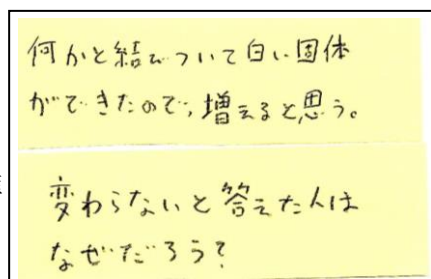 何かと結びついて白い固体
ができたので、増えると思う。
変わらないと答えた人は
なぜだろう?